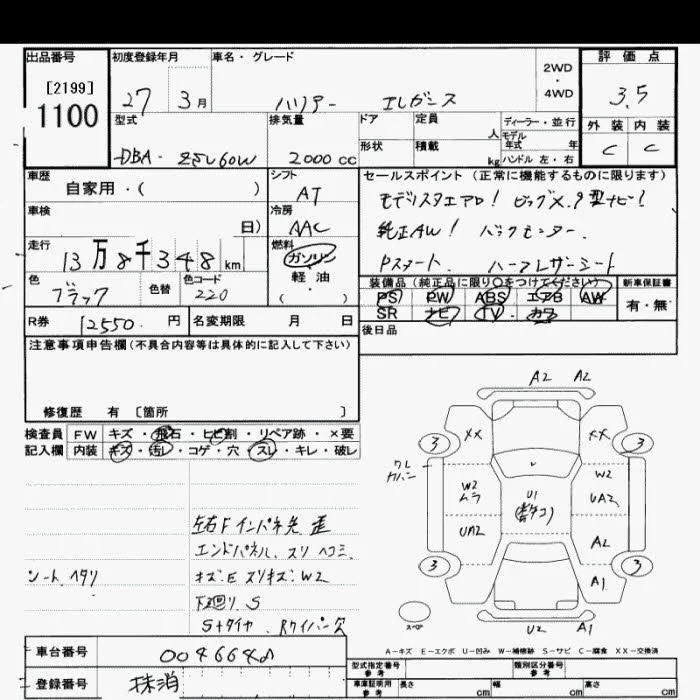 出品番号
[2199]
1100
初度登録年月
27 3月
車名・グレード
ハリアー エレガンス
2WD
・
4WD
評価点
3.5
外装 内装
C C
型式
DBA- ZSU60W
排気量
2000 cc
ドア
形状
定員
人
積載
kg
ディーラー・並行
モデル
年式 年
ハンドル 左・右
車歴
自家用・( )
シフト
AT
車検
日)
冷房
AAC
走行
13万8千348km
燃料
ガソリン
軽油
( ・ )
色
ブラック
色替
色コード
220
R券 12550.円
名変期限 月 日
セールスポイント (正常に機能するものに限ります)
モデリスタエアロ! ビッグX.9型ナビ!
純正AW! バックモニター.
Pスタート. ハーフレザーシート
装備品 (純正品に限り○をつけてください)
PS・PW・ABS・エアB・AW
SR・ナビ・TV・カワ
新車保証書
有・無
後日品
注意事項申告欄 (不具合内容等は具体的に記入して下さい)
修復歴 有 〔箇所 〕
検査員
記入欄
FW キズ・飛石・ヒビ割・リペア跡・×要
内装 キズ・汚レ・コゲ・穴・スレ・キレ・破レ
左右Fインパネ先 歪
エンドパネル. スリ ヘコミ.
シート ヘタリ
キズ:E スリキズ:W2
下廻り. S
S+タイヤ. Rワイパー欠
A2 A2
3 XX XX 3
ワレ
W2
ムラ
W2
U1
UA2
UA2
A2
3 3
A1
スペア
U2 A1
A-キズ E-エクボ U-凹み W-補修跡 S-サビ C-腐食 XX-交換済
車台番号
登録番号 抹消
型式指定番号
参考
類別区分番号
参考
車庫証明用
参考
長さ cm
幅 cm
高さ cm